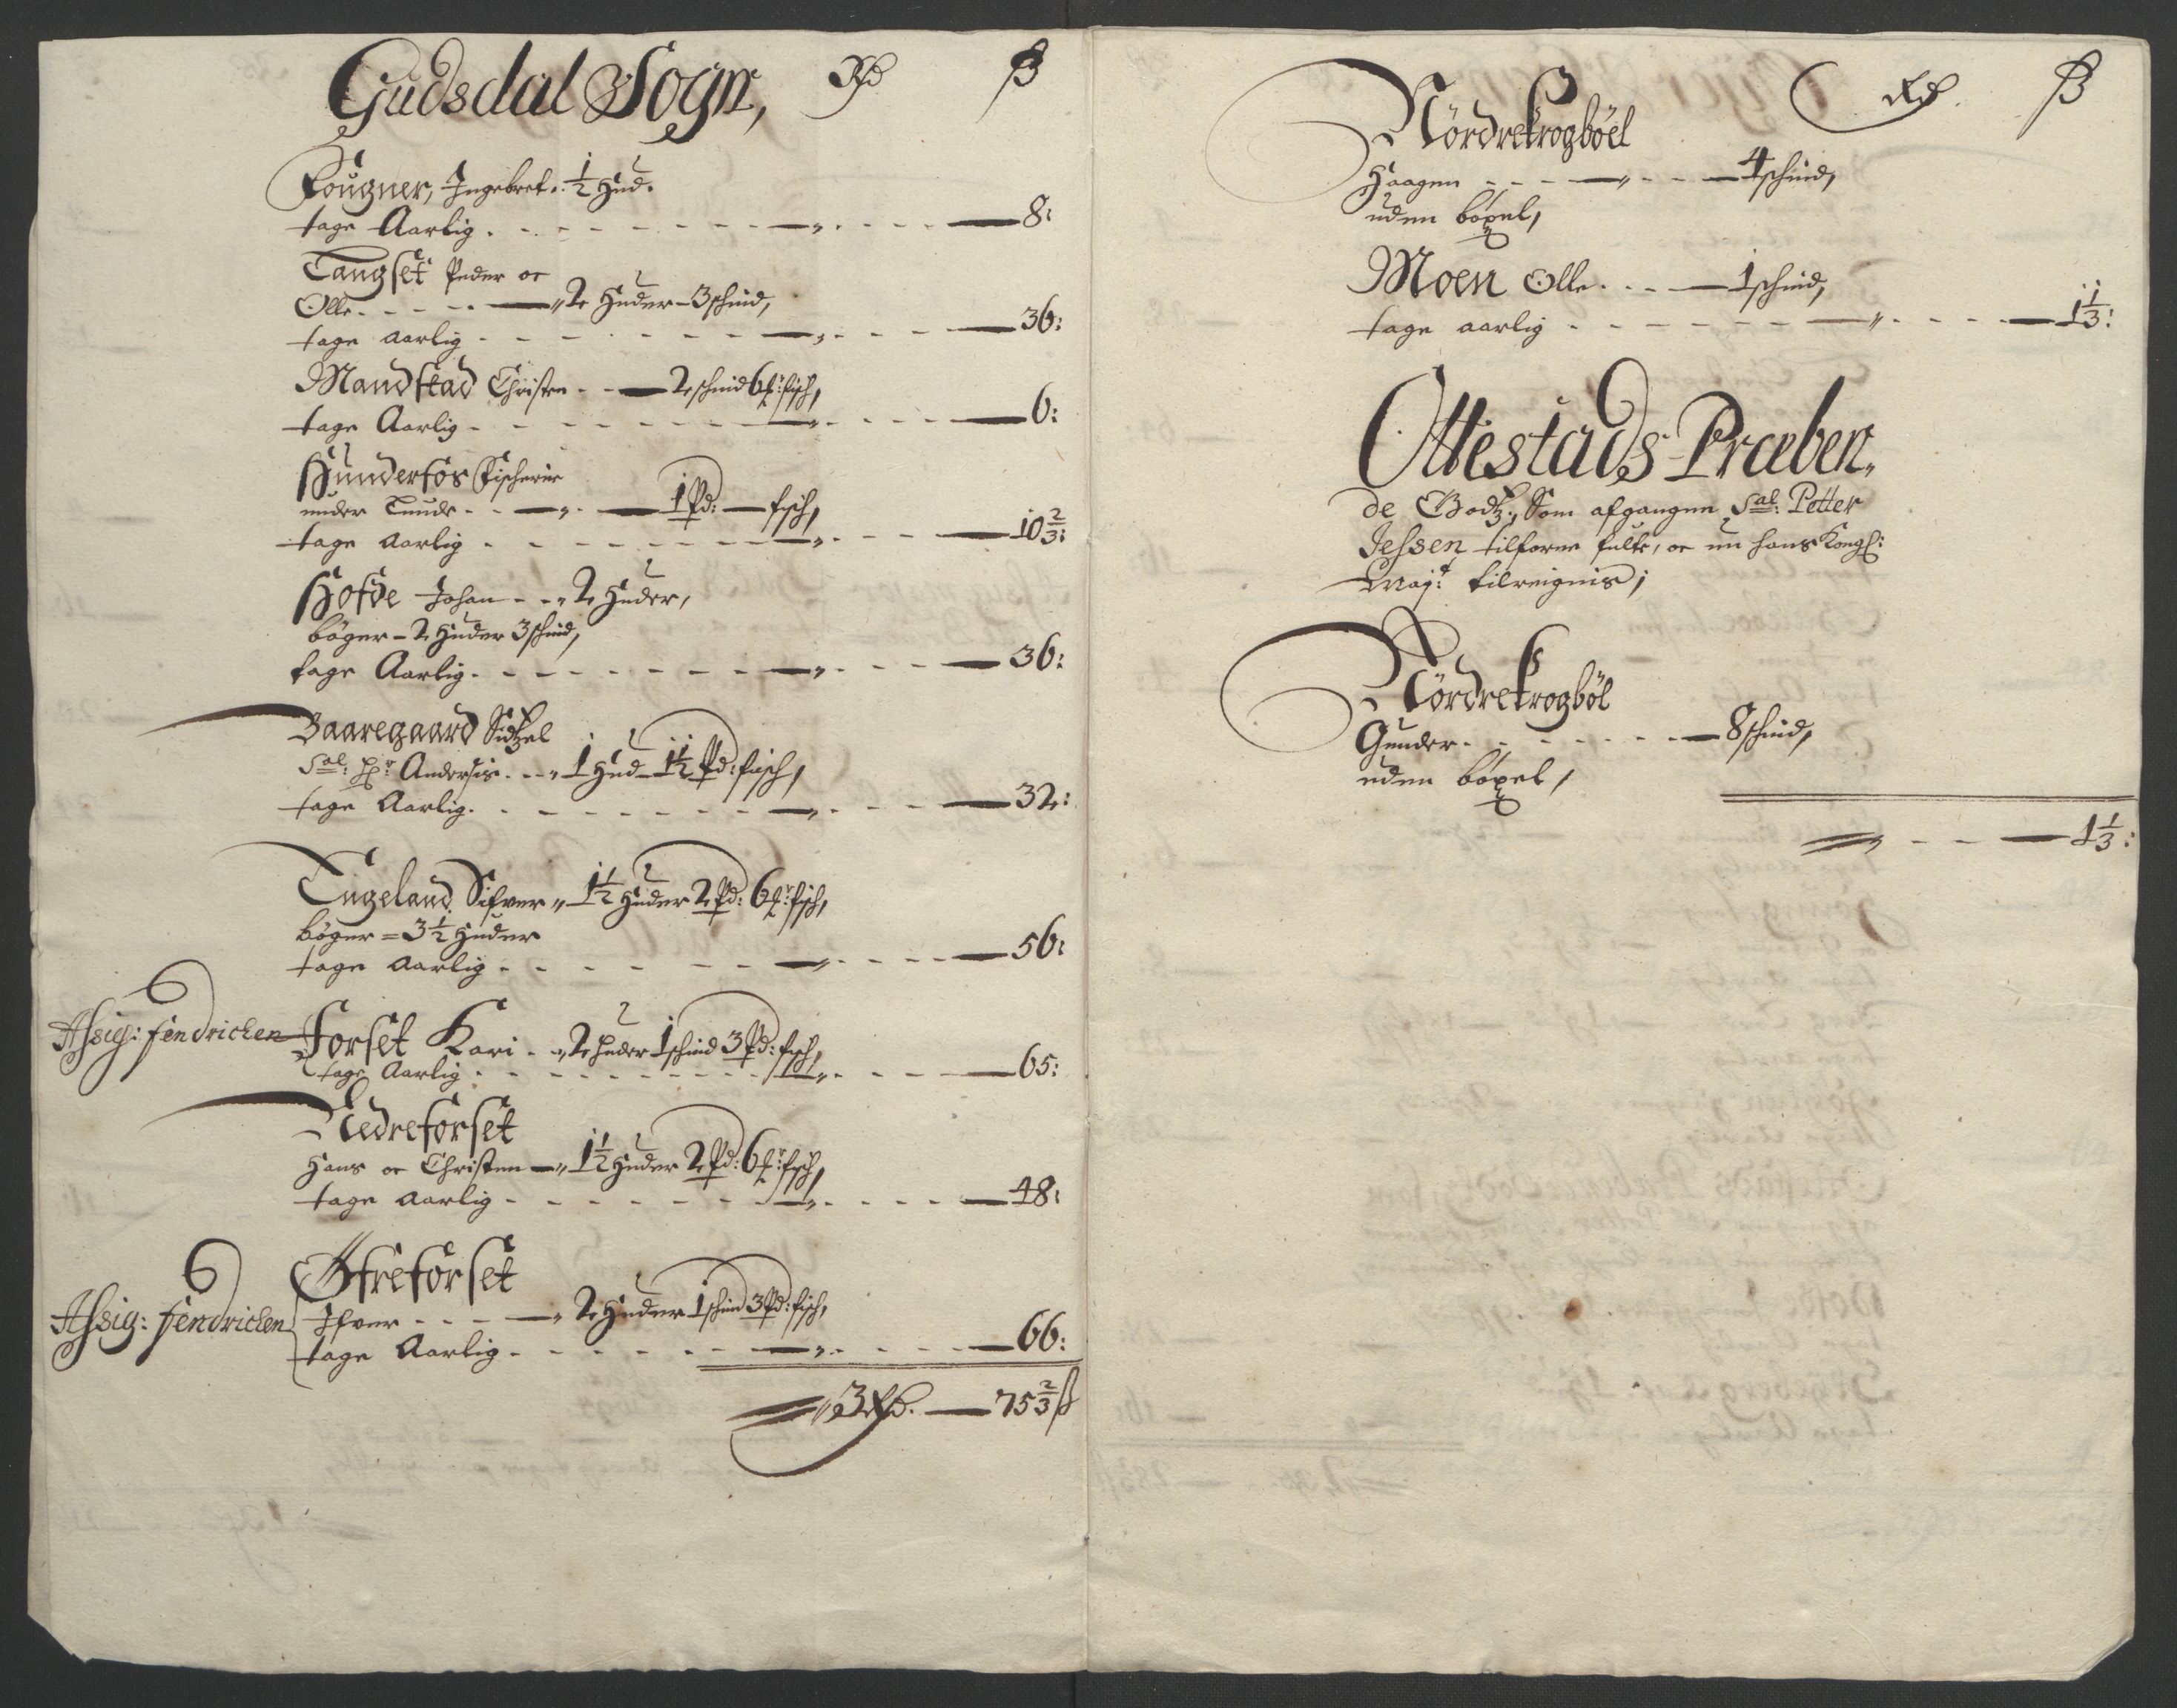 Gudsdal Sogn, Rd ß
Fougner, Ingebret. ½ Hud.
tage Aarlig. 8:
Taugset Peder oc
Olle. 2 Huder - 3 schind,
tage aarlig 36:
Mandstad Christen 2 schind 6 fisch,
tage Aarlig 6:
Hunderfos Fischerie
under 1 Pd: fisch,
tage aarlig 10⅔:
Hofde Johan 2 Huder,
böger - 2 Huder 3 schind,
tage Aarlig. 36:
Baaregaard Sidzel
Sal: Andersis. 1 Hud 1½ Pd: fisch,
tage Aarlig. 32:
Tugeland Sifver 1½ Huder 2 Pd: 6 fisch,
böger = 3½ Huder
tage aarlig 56:
Assig: fendrichen Forset Kari 2 Huder 1 schind 3 Pd: fisch,
tage Aarlig 65:
Nedreforset
Hans oc Christen 1½ Huder 2 Pd: 6 fisch,
tage aarlig 48:
Øfreforset
Assig: fendrichen Ifver 2 Huder 1 schind 3 Pd: fisch,
tage Aarlig. 66:
3 Rd. 75⅔ ß
Rd. ß
Nördrekrogböel
Haagen 4 schind,
uden böxel,
Moen Olle. 1 schind,
tage aarlig 1⅓:
Ottestads Præben,
de Godtz, Som afgangne Sal: Petter
Jessen tilforne fulte, oc nu hans Kongl:
Maj:t tilreignis;
Nördrekrogböl
Gunder. 8 schind,
uden böxel,
1⅓: